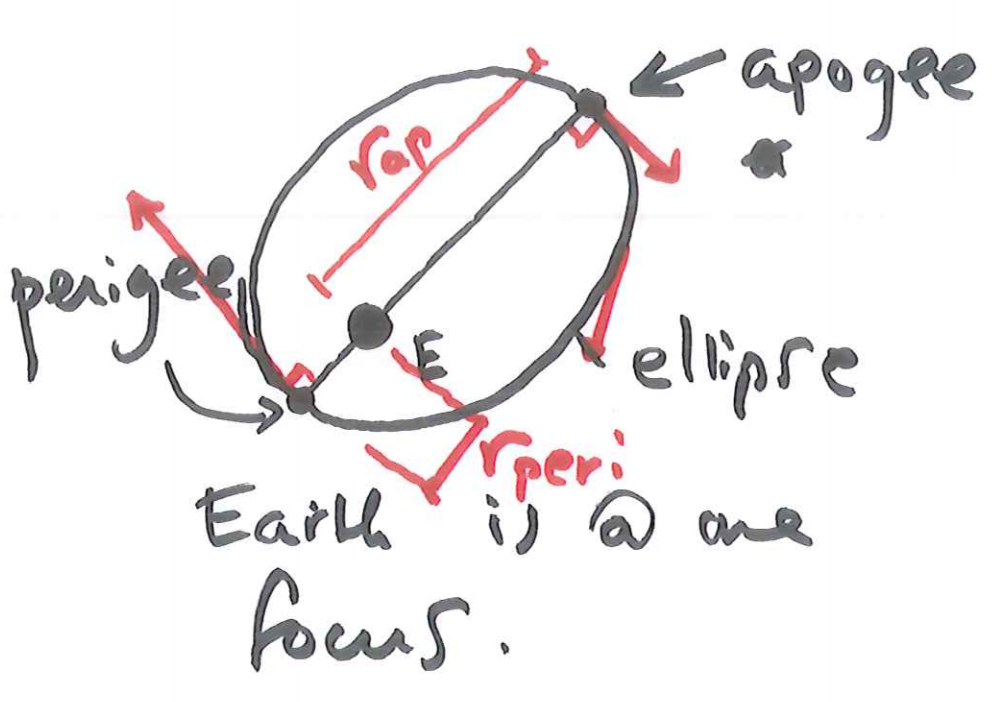 apogee
r_ap
perigee
E
ellipse
r_peri
Earth is @ one
focus.